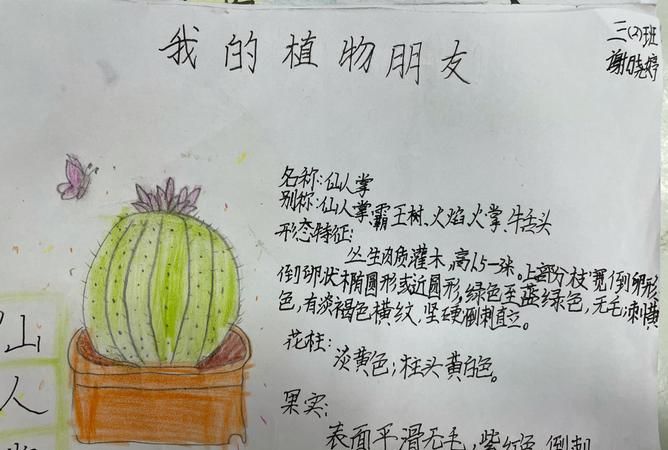 我的植物朋友
三(2)班
谢晓婷
名称:仙人掌
别称:仙人掌、霸王树、火焰、火掌、牛舌头
形态特征:
丛生肉质灌木,高1.5一米。上部分枝宽倒卵形、
倒卵状椭圆形或近圆形,绿色至蓝绿色,无毛;刺黄
色,有淡褐色横纹,坚硬,倒刺直立。
花柱:
淡黄色;柱头黄白色。
果实:
表面平滑无毛,紫红色,倒刺
仙
人